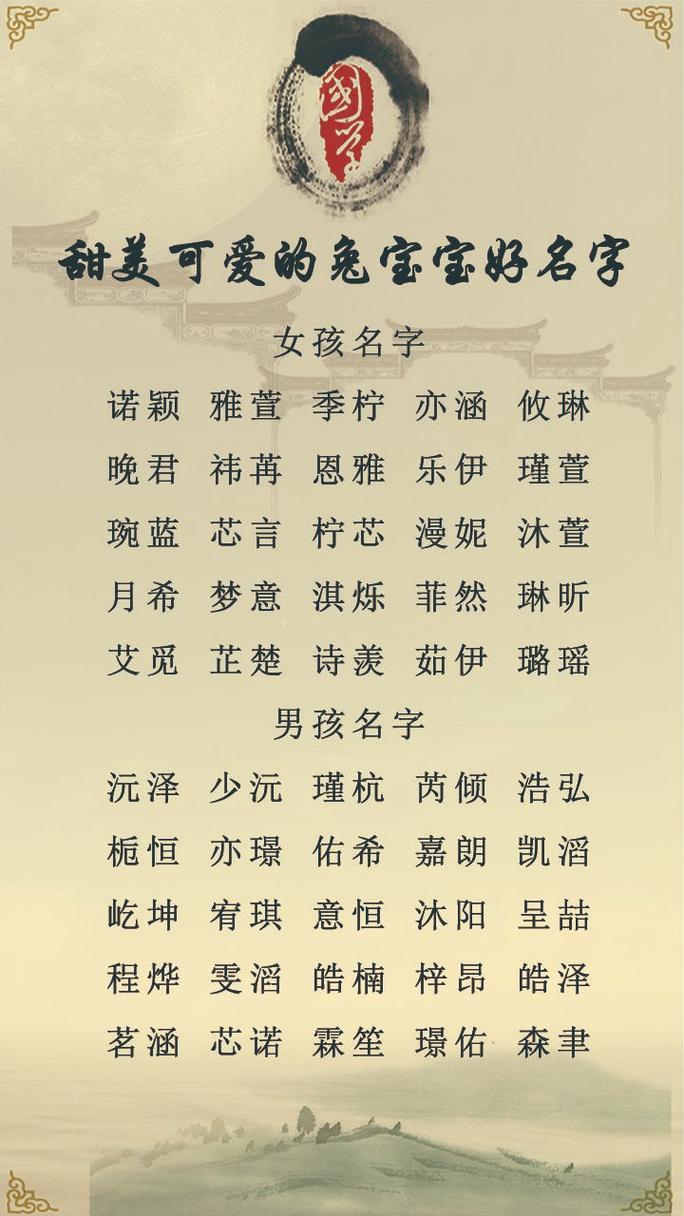 國学
甜美可爱的兔宝宝好名字
女孩名字
诺颖 雅萱 季柠 亦涵 攸琳
晚君 祎苒 恩雅 乐伊 瑾萱
琬蓝 芯言 柠芯 漫妮 沐萱
月希 梦意 淇烁 菲然 琳昕
艾觅 芷楚 诗羡 茹伊 璐瑶
男孩名字
沅泽 少沅 瑾杭 芮倾 浩弘
栀恒 亦璟 佑希 嘉朗 凯滔
屹坤 宥琪 意恒 沐阳 呈喆
程烨 雯滔 皓楠 梓昂 皓泽
茗涵 芯诺 霖笙 璟佑 森聿